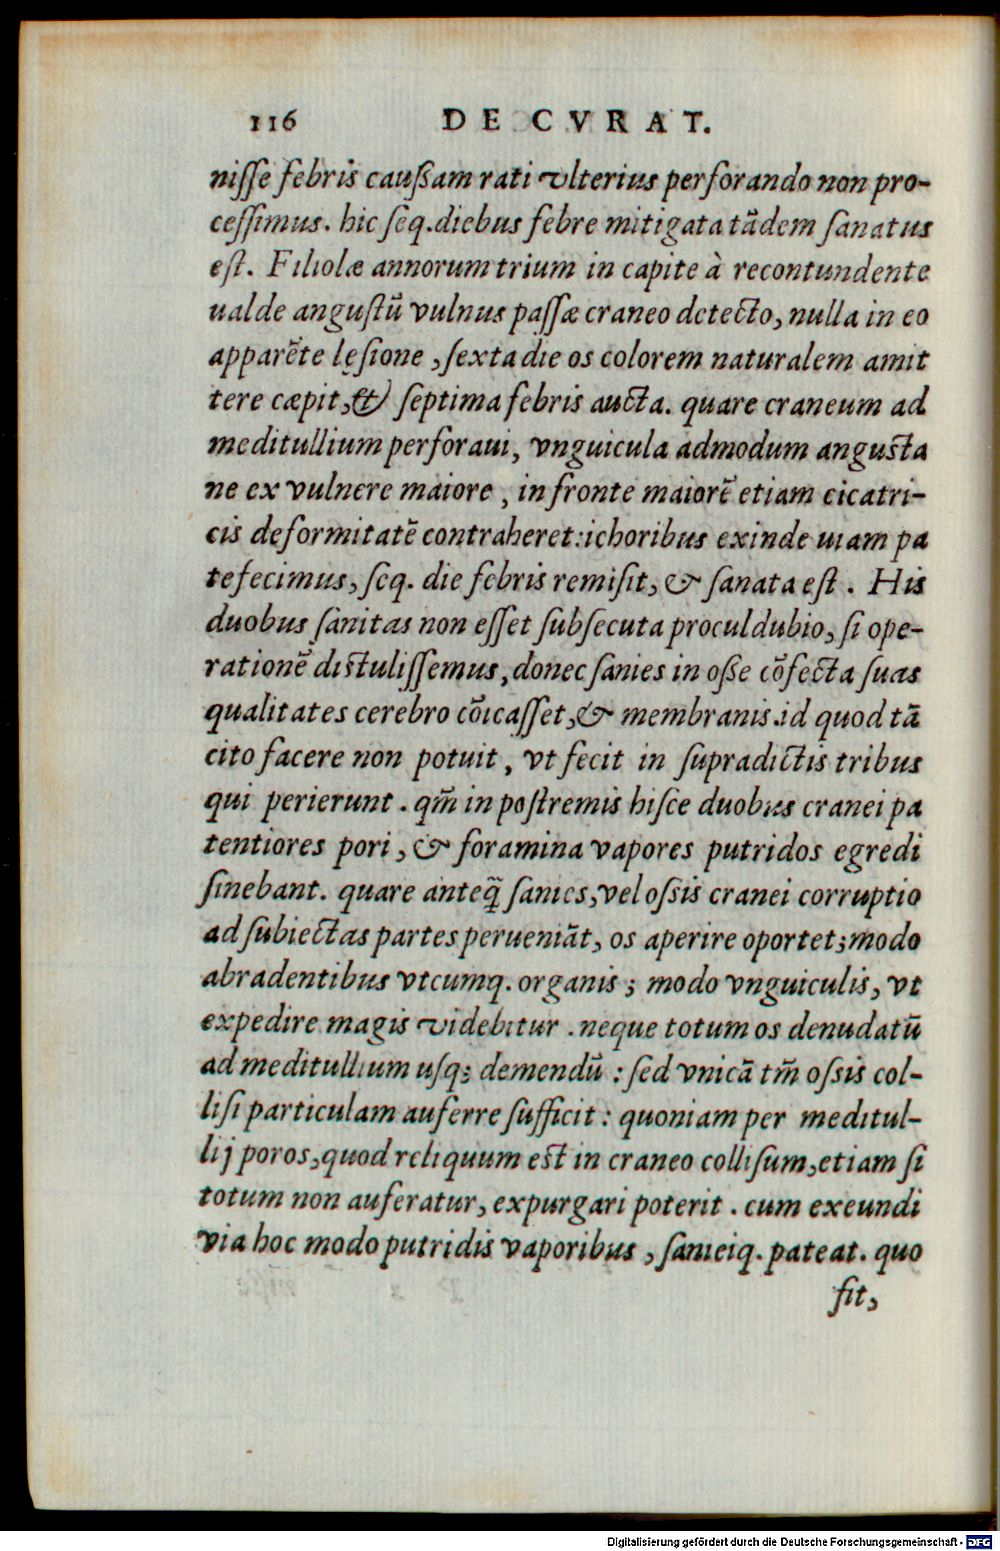 116 DE CVRAT.
nisse febris caußam rati vlterius perforando non pro-
cessimus. hic seq. diebus febre mitigata tãdem sanatus
est. Filiolæ annorum trium in capite à recontundente
ualde angustũ vulnus passæ craneo detecto, nulla in eo
apparẽte lęsione, sexta die os colorem naturalem amit
tere cæpit, & septima febris aucta. quare craneum ad
meditullium perforaui, vnguicula admodum angusta
ne ex vulnere maiore, in fronte maiorẽ etiam cicatri-
cis deformitatẽ contraheret: ichoribus exinde uiam pa
tefecimus, seq. die febris remisit, & sanata est. His
duobus sanitas non esset subsecuta proculdubio, si ope-
rationẽ distulissemus, donec sanies in oße cõfecta suas
qualitates cerebro cõicasset, & membranis. id quod tã
cito facere non potuit, vt fecit in supradictis tribus
qui perierunt. qm̃ in postremis hisce duobus cranei pa
tentiores pori, & foramina vapores putridos egredi
sinebant. quare anteq̃ sanies, vel ossis cranei corruptio
ad subiectas partes perueniãt, os aperire oportet; modo
abradentibus vtcumq. organis; modo vnguiculis, vt
expedire magis videbitur. neque totum os denudatũ
ad meditullium usq; demendũ: sed vnicã tm̃ ossis col-
lisi particulam auferre sufficit: quoniam per meditul-
lij poros, quod reliquum est in craneo collisum, etiam si
totum non auferatur, expurgari poterit. cum exeundi
via hoc modo putridis vaporibus, sanieiq. pateat. quo
fit,
Digitalisierung gefördert durch die Deutsche Forschungsgemeinschaft - DFG